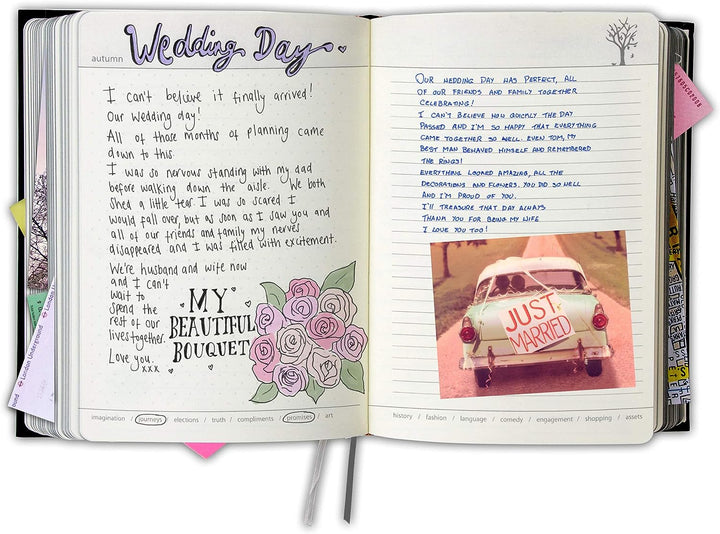 autumn
Wedding Day
I can't believe it finally arrived!
Our wedding day!
All of those months of planning came
down to this
I was so nervous standing with my dad
before walking down the aisle. We both
shed a little tear. I was so scared I
would fall over, but as soon as I saw you and
all of our friends and family my nerves
disappeared and I was filled with excitement.
We're husband and wife now
and I can't
wait to
spend the
rest of our
lives together.
Love you.
xxx
MY
BEAUTIFUL
BOUQUET
imagination / journeys / elections / truth / compliments / promises / art
OUR WEDDING DAY WAS PERFECT, ALL
OF OUR FRIENDS AND FAMILY TOGETHER
CELEBRATING!
I CAN'T BELIEVE HOW QUICKLY THE DAY
PASSED AND I'M SO HAPPY THAT EVERYTHING
CAME TOGETHER SO WELL. EVEN TOM, MY
BEST MAN BEHAVED HIMSELF AND REMEMBERED
THE RINGS!
EVERYTHING LOOKED AMAZING, ALL THE
DECORATIONS AND FLOWERS. YOU DID SO WELL
AND I'M PROUD OF YOU.
I'LL TREASURE THAT DAY ALWAYS.
THANK YOU FOR BEING MY WIFE
I LOVE YOU TOO!
JUST
MARRIED
history / fashion / language / comedy / engagement / shopping / assets
London Underground